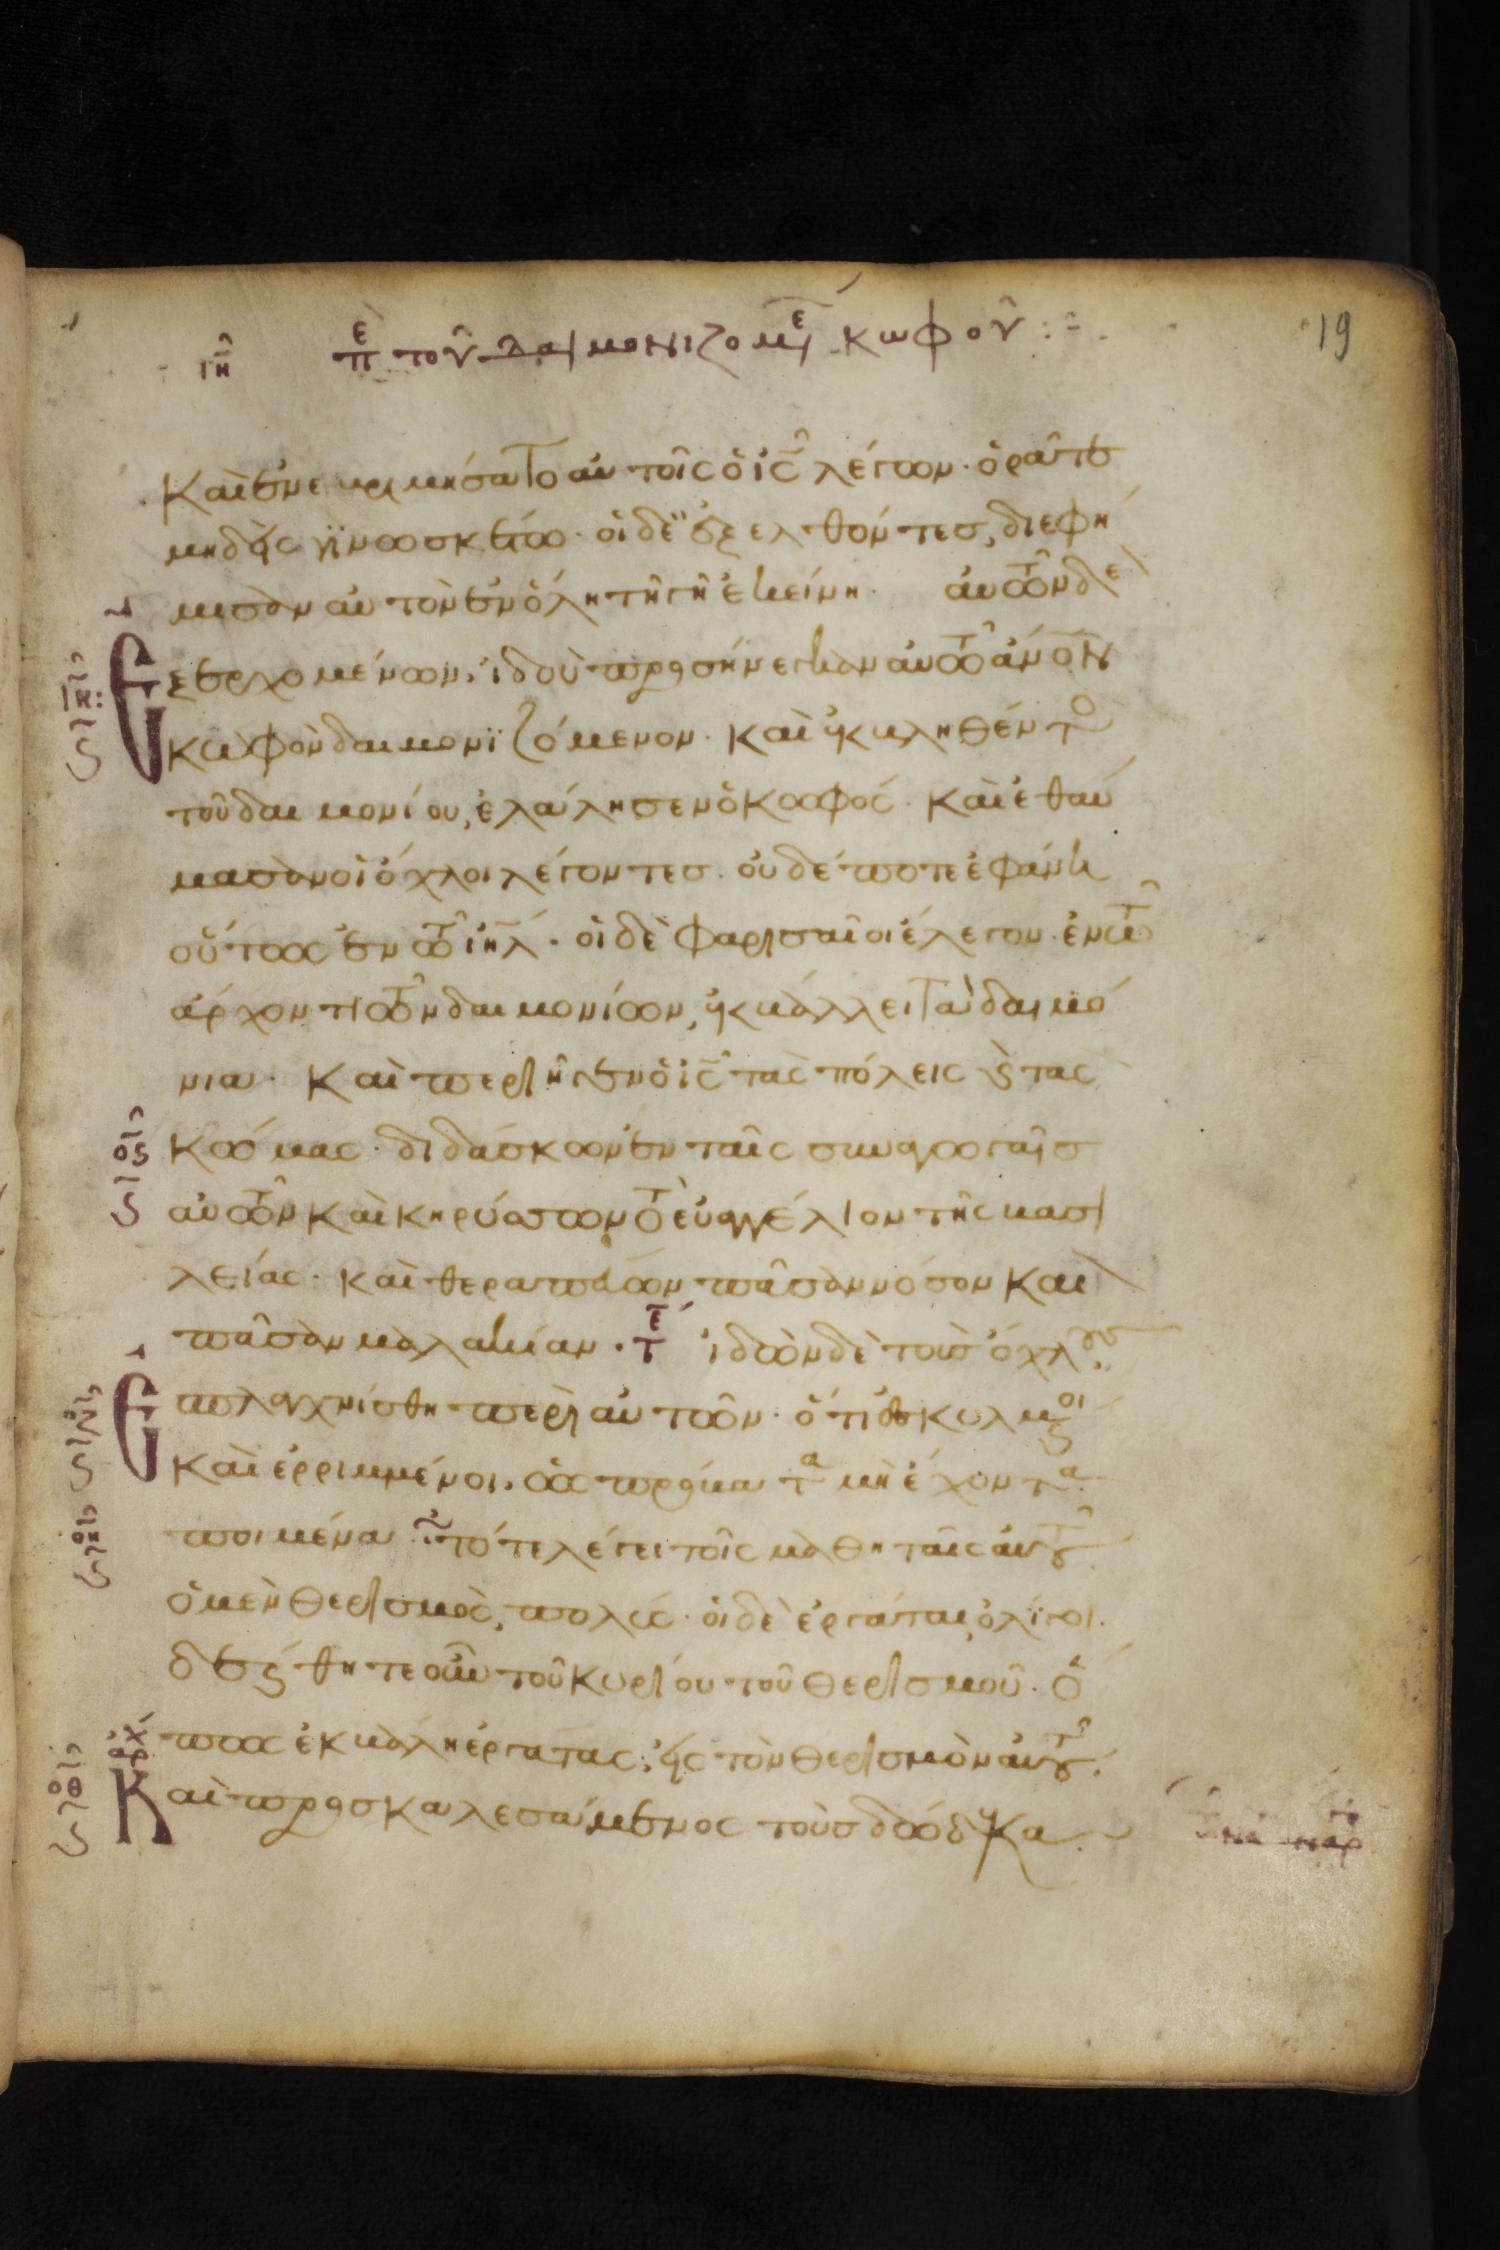 ιη πε τοῦ δαιμονιζομε κωφοῦ :
19
Καὶ ἐνεβριμήσατο αὐτοῖς ὁ ις λέγων· ὁρᾶτε
μηδεὶς γϊνωσκέτω· οἱ δὲ ἐξελθόντες, διεφή
μισαν αὐτὸν ἐν ὅλη τῆ γῆ ἐκείνη. αὐτῶν δὲ
Ἐξερχομένων, ἰδοὺ προσήνεγκαν αὐτῶ ανον
κωφὸν δαιμονϊζόμενον· καὶ ἐκβληθέντο
τοῦ δαιμονίου, ἐλάλησεν ὁ κωφός· καὶ ἐθαύ
μασαν οἱ όχλοι λέγοντες· οὐδέποτε ἐφάνη
οὕτως ἐν τῶ ιηλ· οἱ δὲ φαρισαῖοι έλεγον· ἐν τῶ
άρχοντι τῶν δαιμονίων, ἐκβάλλει τὰ δαιμό
νια· Καὶ περιῆγεν ὁ ις τὰς πόλεις ϗ τὰς
κώμας· διδάσκων ἐν ταῖς συναγωγαῖς
αὐτῶν καὶ κηρύσσων τὸ εὐαγγέλιον τῆς βασι
λείας· καὶ θεραπεύων πᾶσαν νόσον καὶ
πᾶσαν μαλακίαν. τε ἰδὼν δὲ τοὺς όχλους,
Ἐσπλαγχνίσθη περὶ αὐτῶν· ὅτι ἐσκυλμοι
καὶ ἐρριμμένοι, ὡς πρόβατα μὴ έχοντα
ποιμένα τότε λέγει τοῖς μαθηταῖς αὐτοῦ
ὁ μὲν θερισμὸς, πολύς· οἱ δὲ ἐργάται, ὀλίγοι.
δεήθητε οὖν τοῦ κυρίου τοῦ θερισμοῦ· ὅ
πως ἐκβάλη ἐργάτας, εἰς τὸν θερισμὸν αὐτοῦ.
Καὶ προσκαλεσάμενος τοὺς δώδεκα